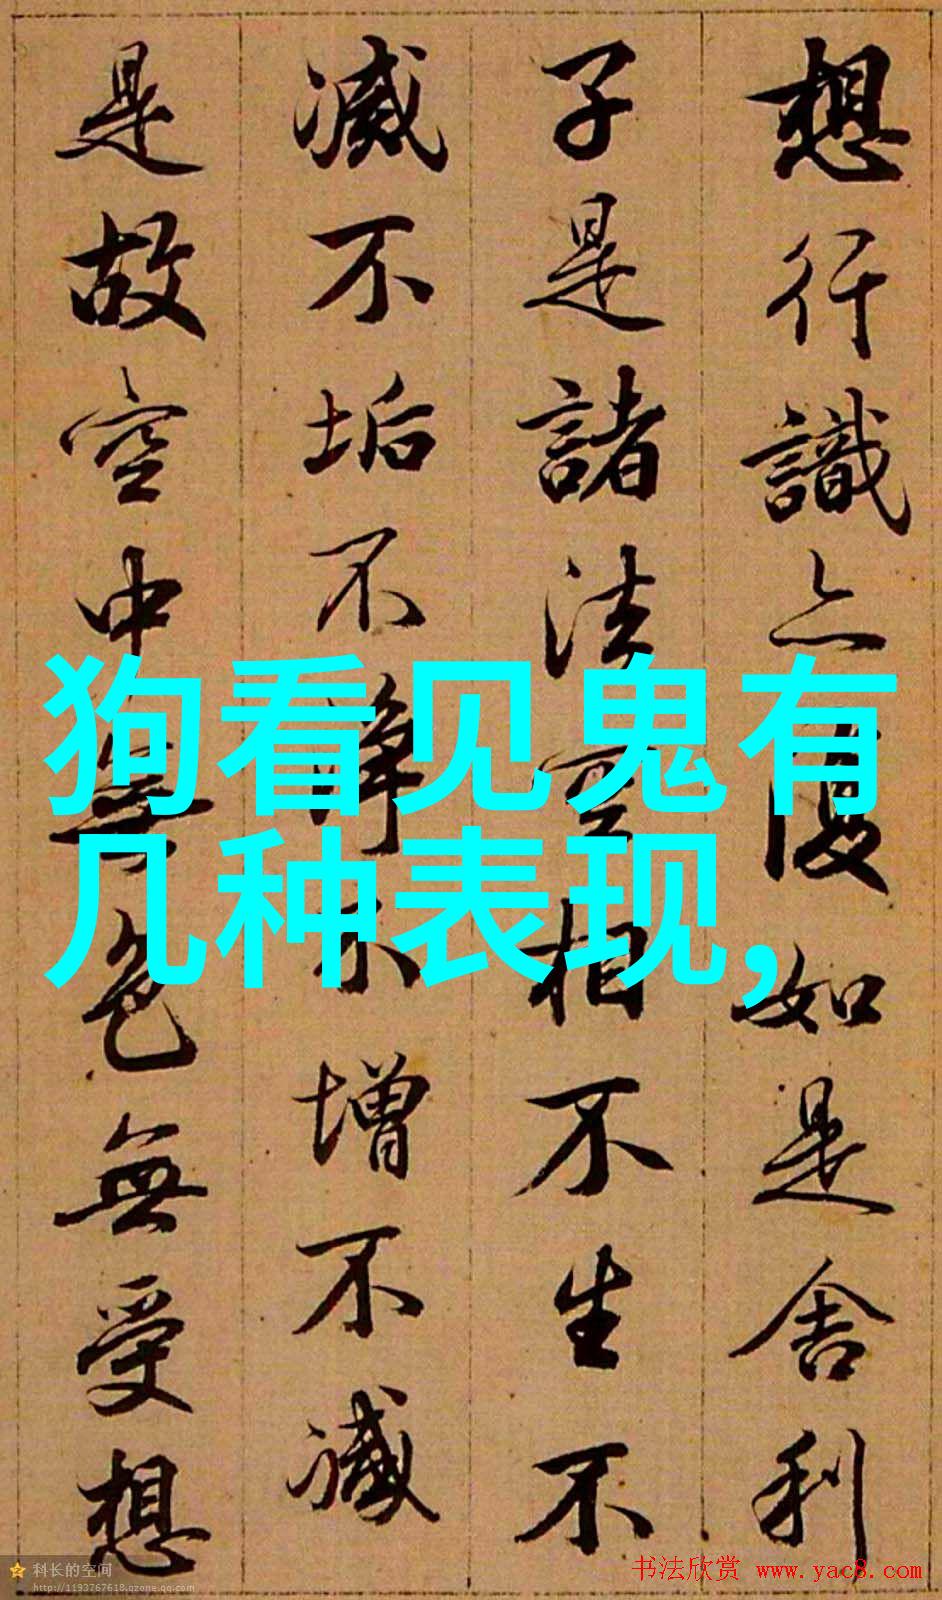 想行識亦復如是舍利
子是諸法空相不生不
滅不垢不淨不增不減
是故空中無色無受想
狗看见鬼有
几种表现,
科长的空间
http://1193767618.qzone.qq.com
书法欣赏 www.yac8.com